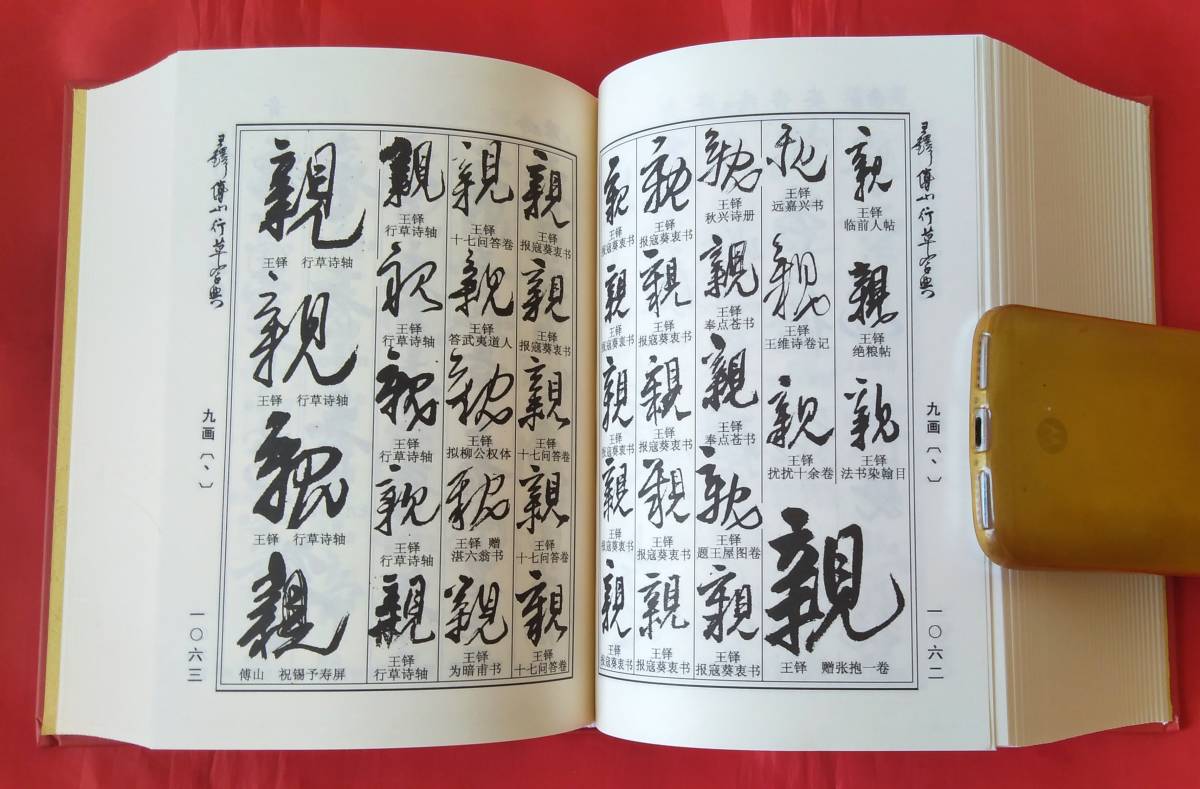 王铎傅山行草字典
九画〔丶〕
一〇六二
親
王铎
临前人帖
親
王铎
绝粮帖
親
王铎
法书染翰目
親
王铎
远嘉兴书
親
王铎
王维诗卷记
親
王铎
扰扰十余卷
親
王铎 赠张抱一卷
親
王铎
秋兴诗册
親
王铎
奉点苍书
親
王铎
奉点苍书
親
王铎
题王屋图卷
親
王铎
报寇葵衷书
親
王铎
报寇葵衷书
親
王铎
报寇葵衷书
親
王铎
报寇葵衷书
親
王铎
报寇葵衷书
親
王铎
报寇葵衷书
親
王铎
报寇葵衷书
親
王铎
报寇葵衷书
親
王铎
报寇葵衷书
親
王铎
报寇葵衷书
親
王铎
报寇葵衷书
親
王铎
报寇葵衷书
親
王铎
报寇葵衷书
親
王铎
十七问答卷
親
王铎
十七问答卷
親
王铎
十七问答卷
親
王铎
十七问答卷
親
王铎
答武夷道人
親
王铎
拟柳公权体
親
王铎 赠
湛六翁书
親
王铎
为暗甫书
親
王铎
行草诗轴
親
王铎
行草诗轴
親
王铎
行草诗轴
親
王铎
行草诗轴
親
王铎
行草诗轴
親
王铎 行草诗轴
親
王铎 行草诗轴
親
王铎 行草诗轴
親
傅山 祝锡予寿屏
王铎傅山行草字典
九画〔丶〕
一〇六三